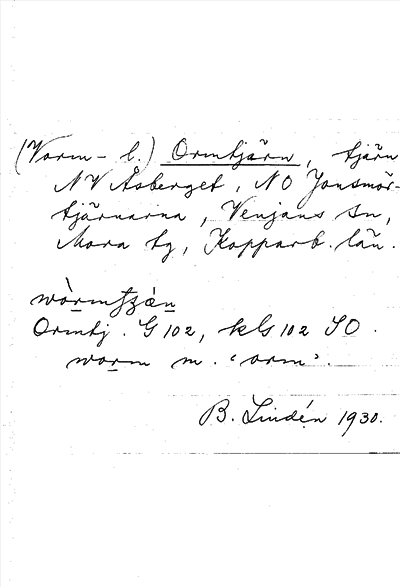 (Vorm- l.) Ormtjärn, tjärn
NV Åsberget, NO Jonsmös-
tjärnarna, Venjans sn,
Mora tg, Kopparb. län.
wòrmʃʒæ̀n
Ormtj. G 102, kls 102 SO.
worm m. 'orm'.
B. Lindén 1930.